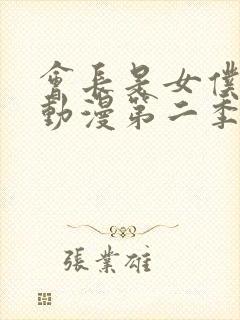 會長是女僕
動漫第二季
張業雄